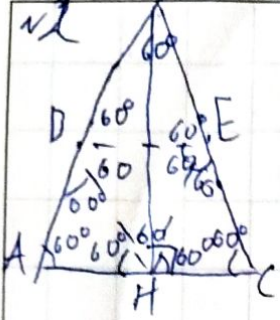 √2
60°
D 60° 60° E
60 60
60° 60
A 60° 60° 60 60° 60° C
H